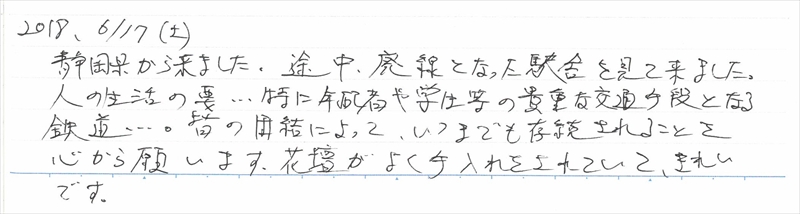 2018、6/17(土)
静岡県から来ました。途中、廃線となった駅舎を見て来ました。
人の生活の要…特に年配者や学生等の貴重な交通手段となる
鉄道…。皆の団結によって、いつまでも存続されることを
心から願います。花壇がよく手入れをされていて、きれい
です。